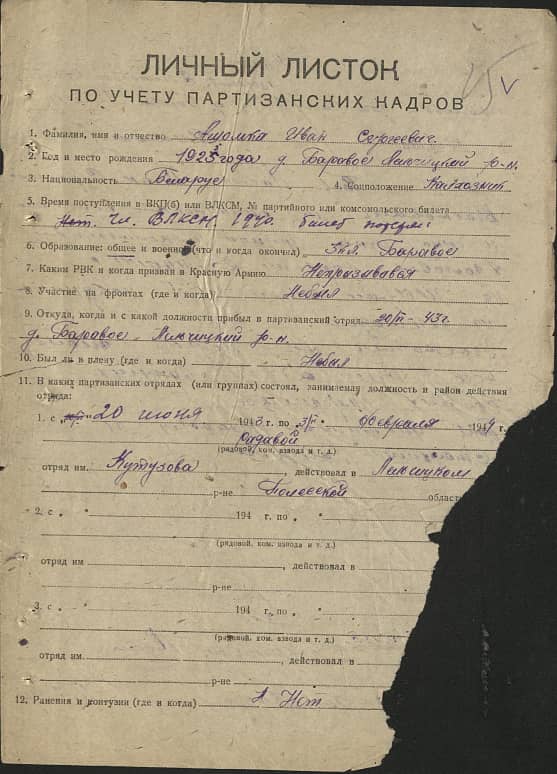 ЛИЧНЫЙ ЛИСТОК
ПО УЧЕТУ ПАРТИЗАНСКИХ КАДРОВ
1. Фамилия, имя и отчество Иван Сергеевич.
2. Год и место рождения 1923 года д. Баровое р-н.
3. Национальность Беларус 4. Соцположение Калхозник
5. Время поступления в ВКП(б) или ВЛКСМ, № партийного или комсомольского билета
Нет. Чл. ВЛКСМ 1940. билет
6. Образование: общее и военное (что и когда окончил) Баравое
7. Каким РВК и когда призван в Красную Армию Непразивався
8. Участие на фронтах (где и когда) Небыл
9. Откуда, когда и с какой должности прибыл в партизанский отряд 43г.
д. Баравое р-н.
10. Был ли в плену (где и когда) Небыл
11. В каких партизанских отрядах (или группах) состоял, занимаемая должность и район действия
отряда:
1. с 20 июня 1943 г. по февраля 194
радавой
(рядовой, ком. взвода и т. д.)
отряд им. Кутузова , действовал в
р-не Полесской област
2. с „ " 194 г. по „ "
(рядовой, ком. взвода и т. д.)
отряд им , действовал в
р-не
3. с „ " 194 г. по „ "
(рядовой, ком. взвода и т. д.)
отряд им. , действовал в
р-не
12. Ранения и контузии (где и когда) Нет